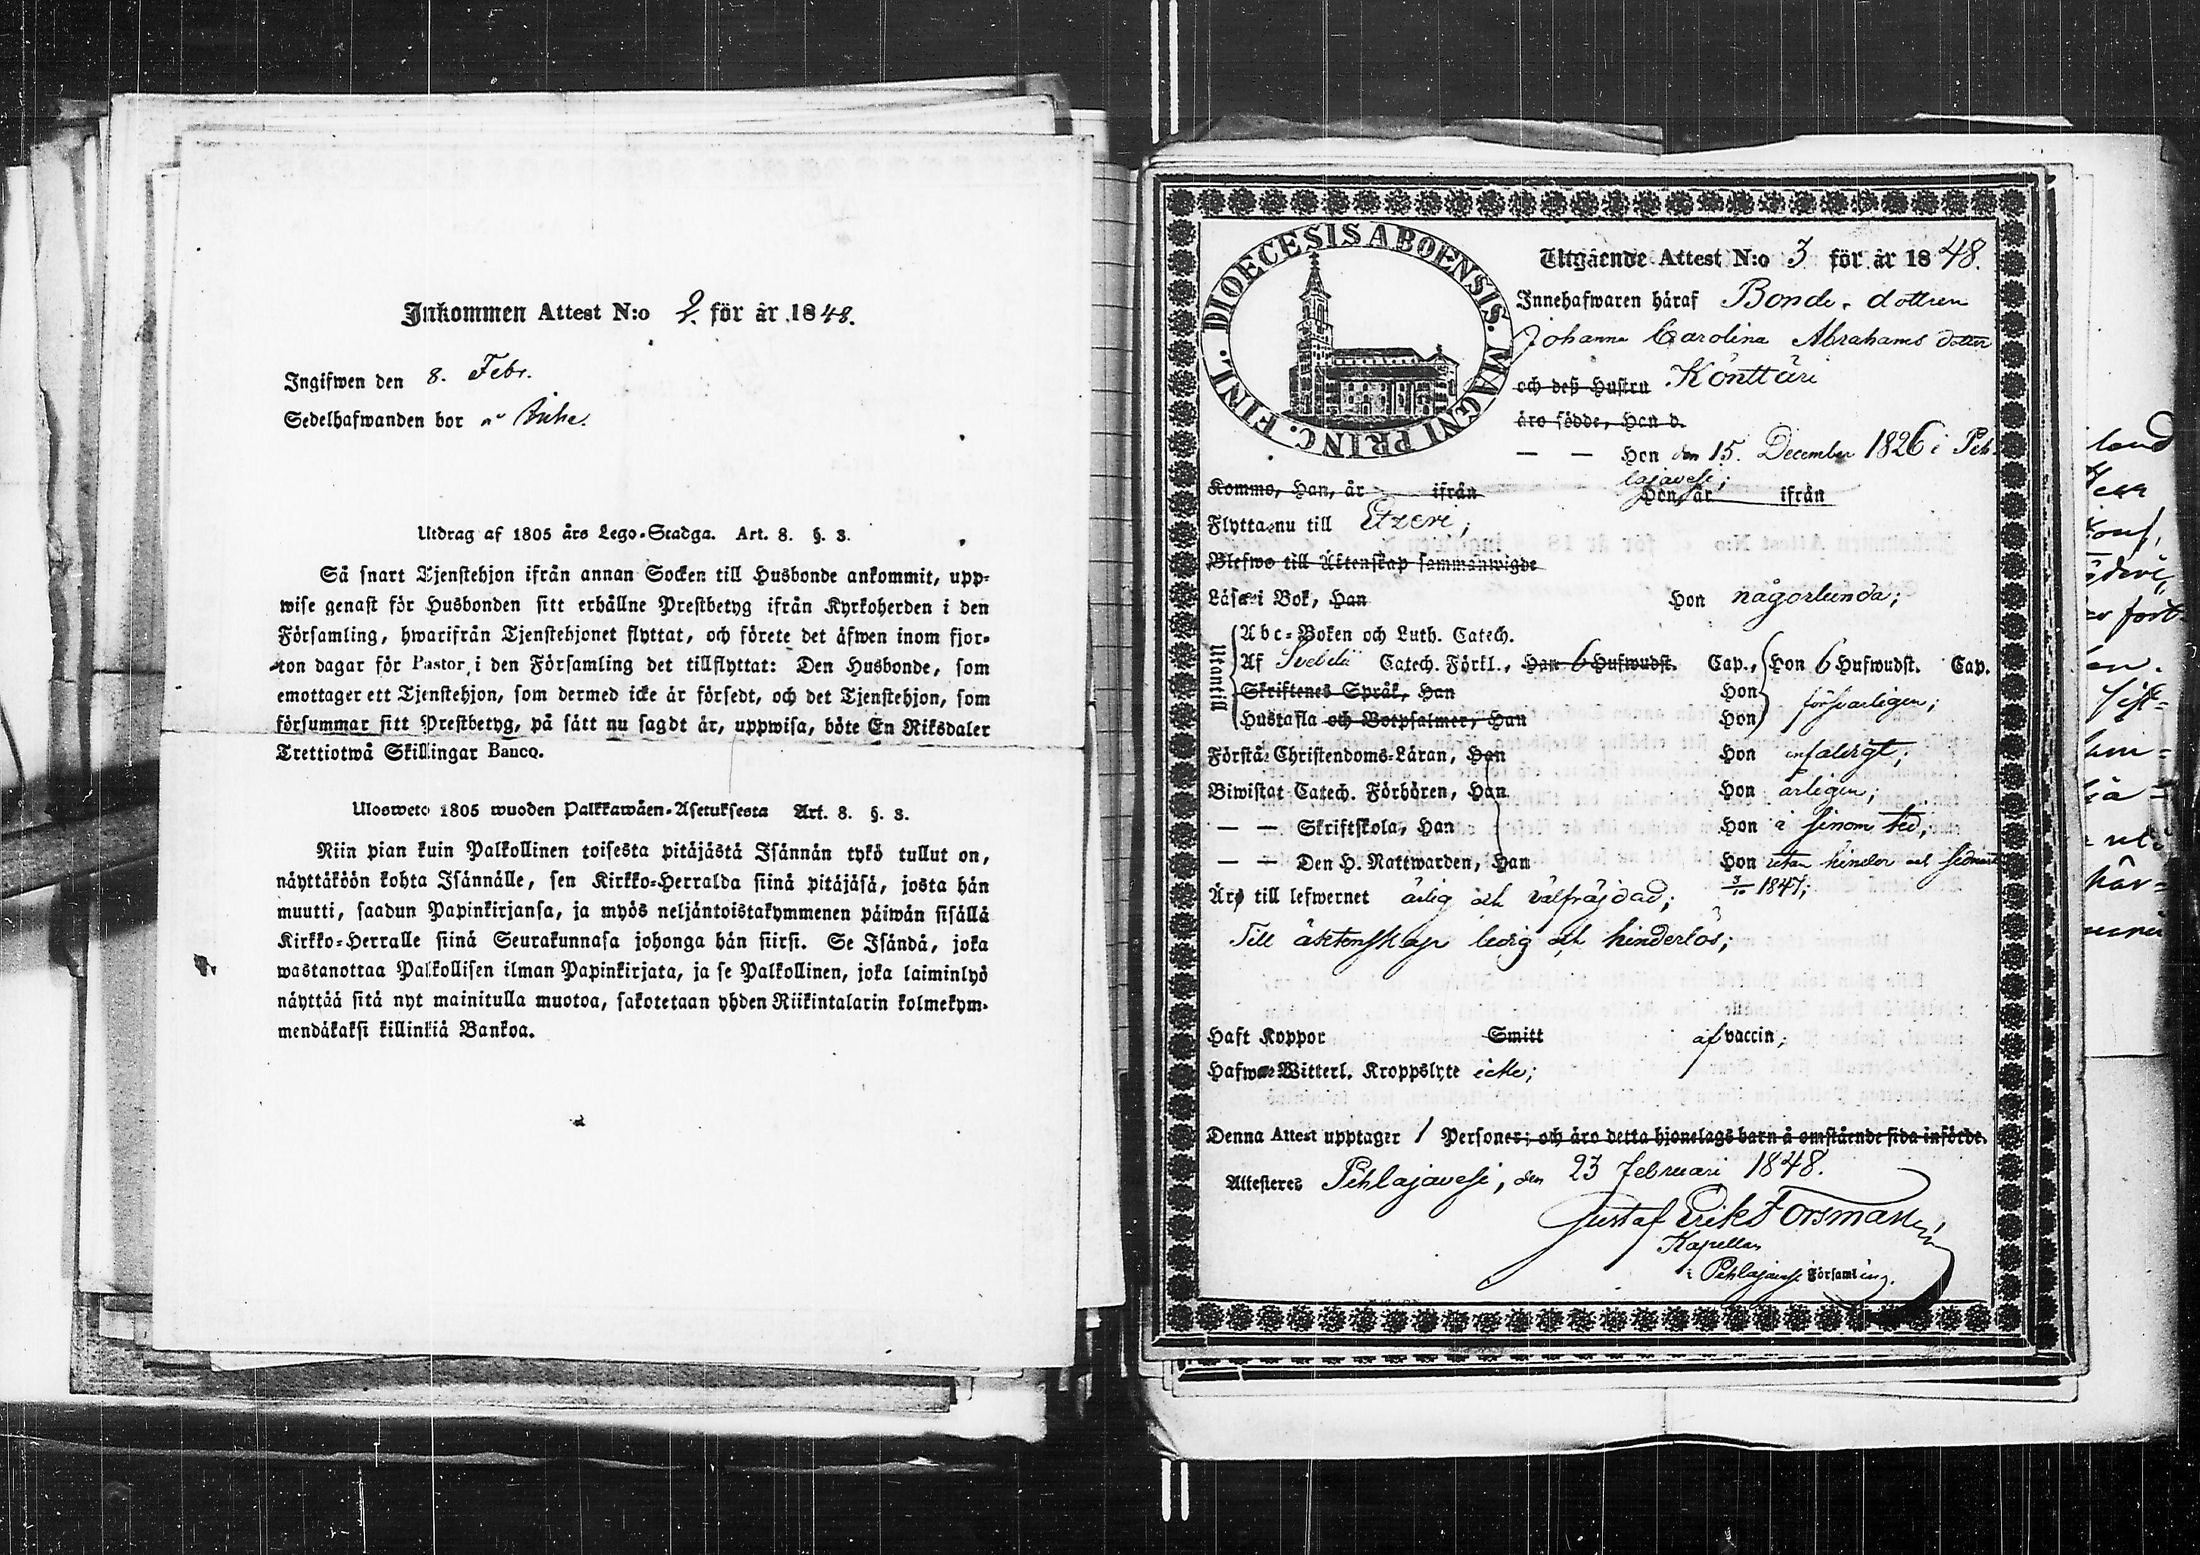 Inkommen Attest N:o 2. för år 1848.
Ingifwen den 8. Febr.
Sedelhafwanden bor
Utdrag af 1805 års Lego-Stadga. Art. 8. §. 3.
Så snart Tjenstehjon ifrån annan Socken till Husbonde ankommit, upp-
wise genast för Husbonden sitt erhållne Prestbetyg ifrån Kyrkoherden i den
Församling, hwarifrån Tjenstehjonet flyttat, och förete det äfwen inom fjor-
ton dagar för Pastor i den Församling det tillflyttat: Den Husbonde, som
emottager ett Tjenstehjon, som dermed icke är försedt, och det Tjenstehjon, som
försummar sitt Prestbetyg, på sätt nu sagdt är, uppwisa, böte En Riksdaler
Trettiotwå Skillingar Banco.
Ulosweto 1805 wuoden Palkkawäen-Asetuksesta Art. 8. §. 3.
Niin pian kuin Palkollinen toisesta pitäjästä Isännän tykö tullut on,
näyttäköön kohta Isännälle, sen Kirkko-Herralda siinä pitäjäsä, josta hän
muutti, saadun Papinkirjansa, ja myös neljäntoistakymmenen päiwän sisällä
Kirkko-Herralle siinä Seurakunnasa johonga hän siirsi. Se Isändä, joka
wastanottaa Palkollisen ilman Papinkirjata, ja se Palkollinen, joka laiminlyö
näyttää sitä nyt mainitulla muotoa, sakotetaan yhden Riikintalarin kolmekym-
mendäkaksi killinkiä Bankoa.
DIOECESIS ABOENSIS. MAGNI PRINC. FINL.
Utgående Attest N:o 3 för år 1848.
Innehafwaren häraf Bonde-dottren
Johanna Carolina Abrahams dotter
och deß Hustru Könttäri
äro födde, Han d.
— — Hon den 15. December 1826 i Pih-
lajavesi;
Komme, Han, år ifrån Hon, år ifrån
Flytta nu till Etzeri;
Blefwo till Äktenskap sammanwigde
Läsa i Bok, Han Hon någorlunda;
Utantill
Abc-Boken och Luth. Catech.
Af Svebelii Catech. Förkl., Han 6 Hufwudst. Cap., Hon 6 Hufwudst. Cap.
Skriftenes Språk, Han Hon
Hustafla och Botpsalmer, Han Hon försvarligen;
Förstå Christendoms-Läran, Han Hon enfaldigt;
Biwistat Catech. Förhören, Han Hon årligen;
— — Skriftskola, Han Hon i sinom tid;
— — Den H. Nattwarden, Han Hon utan hinder och sednast
3/10 1847;
Äro till lefwernet ärlig och välfräjdad;
Till äktenskap ledig och hinderlös;
Haft Koppor Smitt af vaccin;
Hafwa Witterl. Kroppslyte icke;
Denna Attest upptager 1 Personer; och äro detta hjonelags barn å omstående sida införde.
Attesteres Pihlajavesi, den 23 Februari 1848.
Gustaf Erik Forsman
Kapellan
i Pihlajavesi Församling.